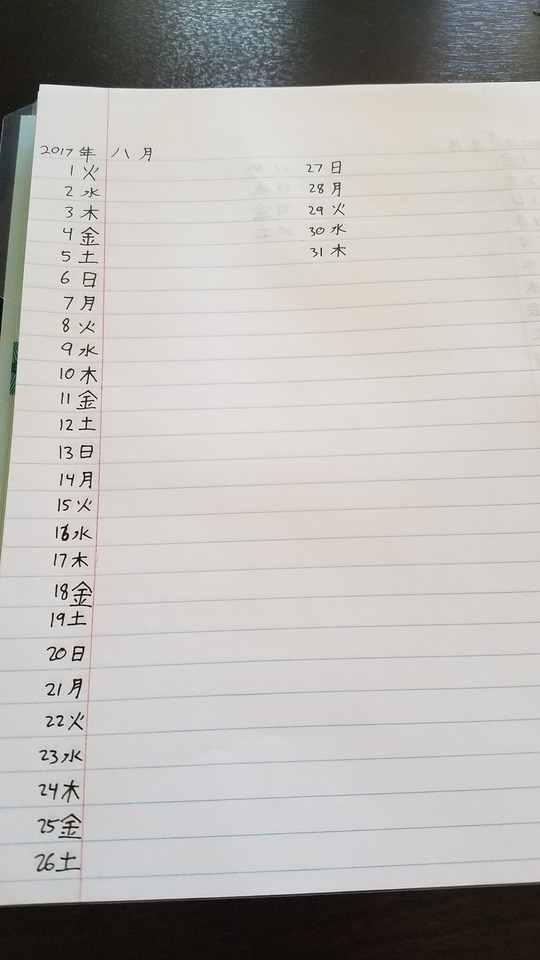 2017年 八月
1 火
2 水
3 木
4 金
5 土
6 日
7 月
8 火
9 水
10 木
11 金
12 土
13 日
14 月
15 火
16 水
17 木
18 金
19 土
20 日
21 月
22 火
23 水
24 木
25 金
26 土
27 日
28 月
29 火
30 水
31 木